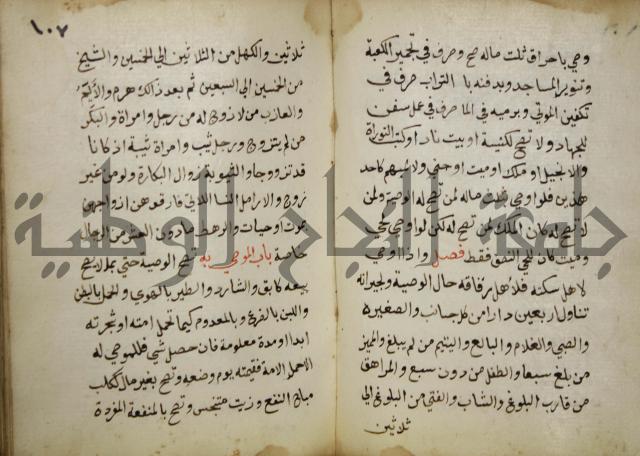 وصي باحراق ثلث ماله صح وصرف في تجمير الكعبة
وتنوير المساجد وبدفنه بالتراب صرف في
تكفين الموتي وبرميه في الما صرف في عمل سفن
للجهاد ولا تصح لكنيسة او بيت نار او كتب التوراة
والانجيل او ملك او ميت او جني ولا لمبهم كاحد
هذين فلو اوصي بثلث ماله لمن تصح له الوصية ولمن
لا تصح له كان الكل لمن تصح له لكن لو اوصي لحي
وميت كان للحي النصف فقط فصل واذا اوصي
لاهل سكته فلاهل زقاقه حال الوصية ولجيرانه
تناول اربعين دارا من كل جانب والصغير
والصبي والغلام واليافع واليتيم من لم يبلغ والمميز
من بلغ سبعا والطفل من دون سبع والمراهق
من قارب البلوغ والشاب والفتي من البلوغ الي
ثلاثين
١٠٧
ثلاثين والكهل من الثلاثين الي الخمسين والشيخ
من الخمسين الي السبعين ثم بعد ذالك هرم والايم
والعازب من لا زوج له من رجل وامراة والبكر
من لم يتزوج ورجل ثيب وامراة ثيبة اذ كانا
قد تزوجا والثيوبة زوال البكارة ولو من غير
زوج والارامل النسا اللاتي فارقوهن ازواجهن
بموت او حيات والرهط ما دون العشرة من الرجال
خاصة باب الموصي به تصح الوصية حتي بما لا يصح
بيعه كابق والشارد والطير بالهوي والحمل بالبطن
واللبن بالضرع وبالمعدوم كبما تحمل امته او شجرته
ابدا او مدة معلومة فان حصل شي فللموصي له
الا حمل الامة فقيمته يوم وضعه وتصح بغير مال ككلب
مباح النفع وزيت متنجس وتصح بالمنفعة المفردة
جامعة النجاح الوطنية